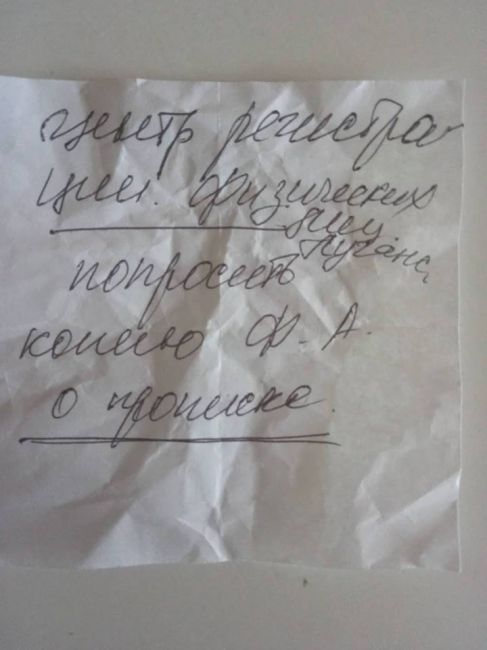 центр регистра
ции. физических
лиц
Луганс.
попросить
копию Ф. А.
о прописке.